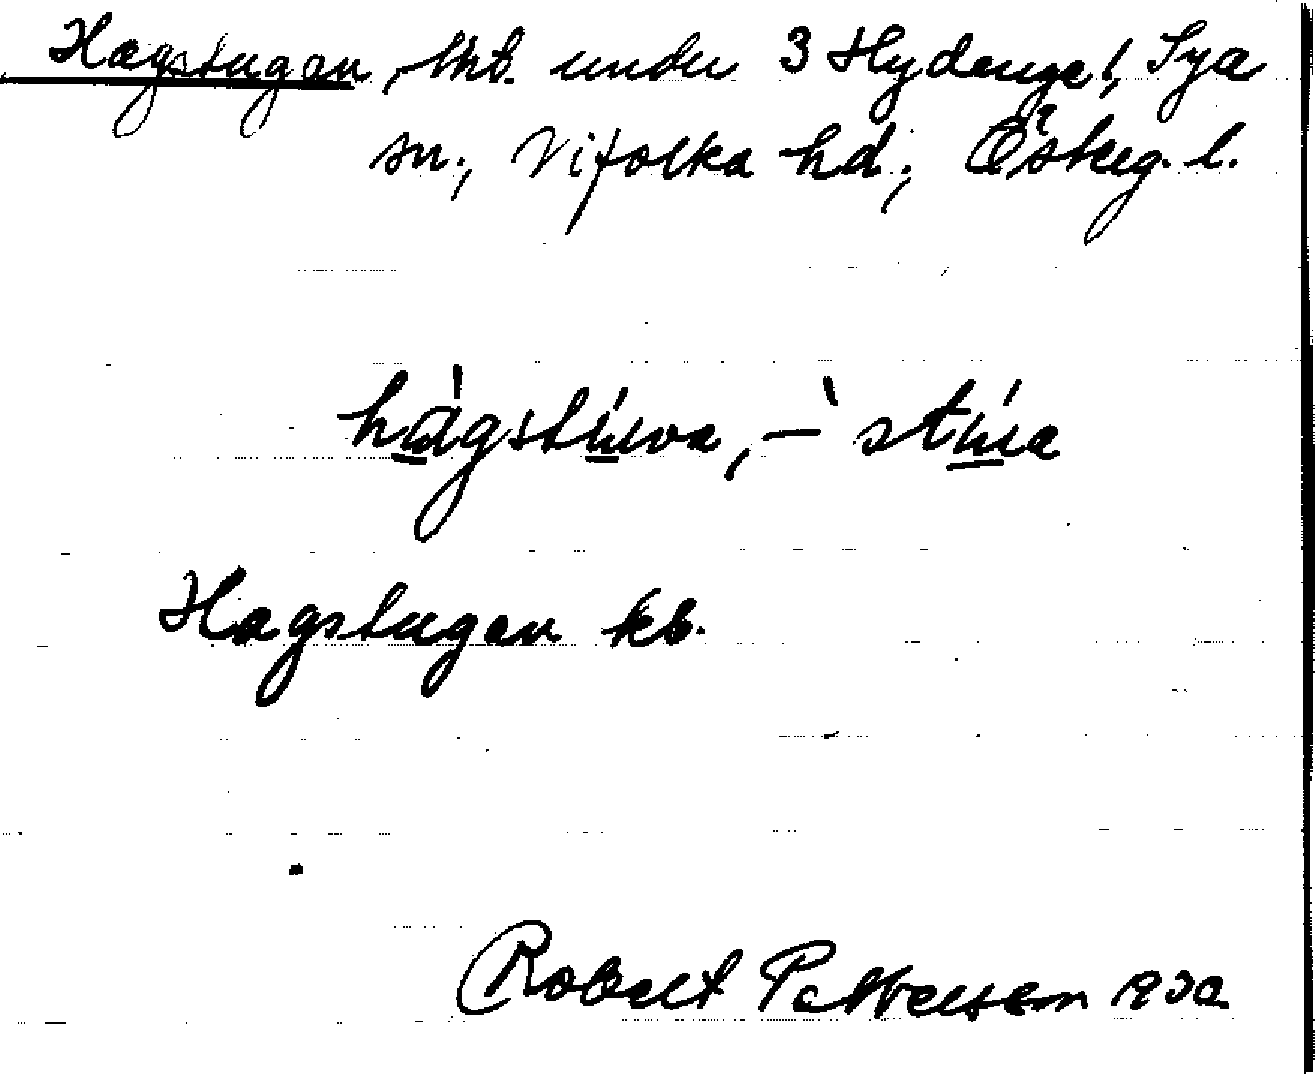 Hagstugan, lht. under 3 Hydinge!, Sya
sn., Vifolka hd., Österg. l.
hàgstúva, -̀stúa
Hagstugan kb.
Robert Pettersson